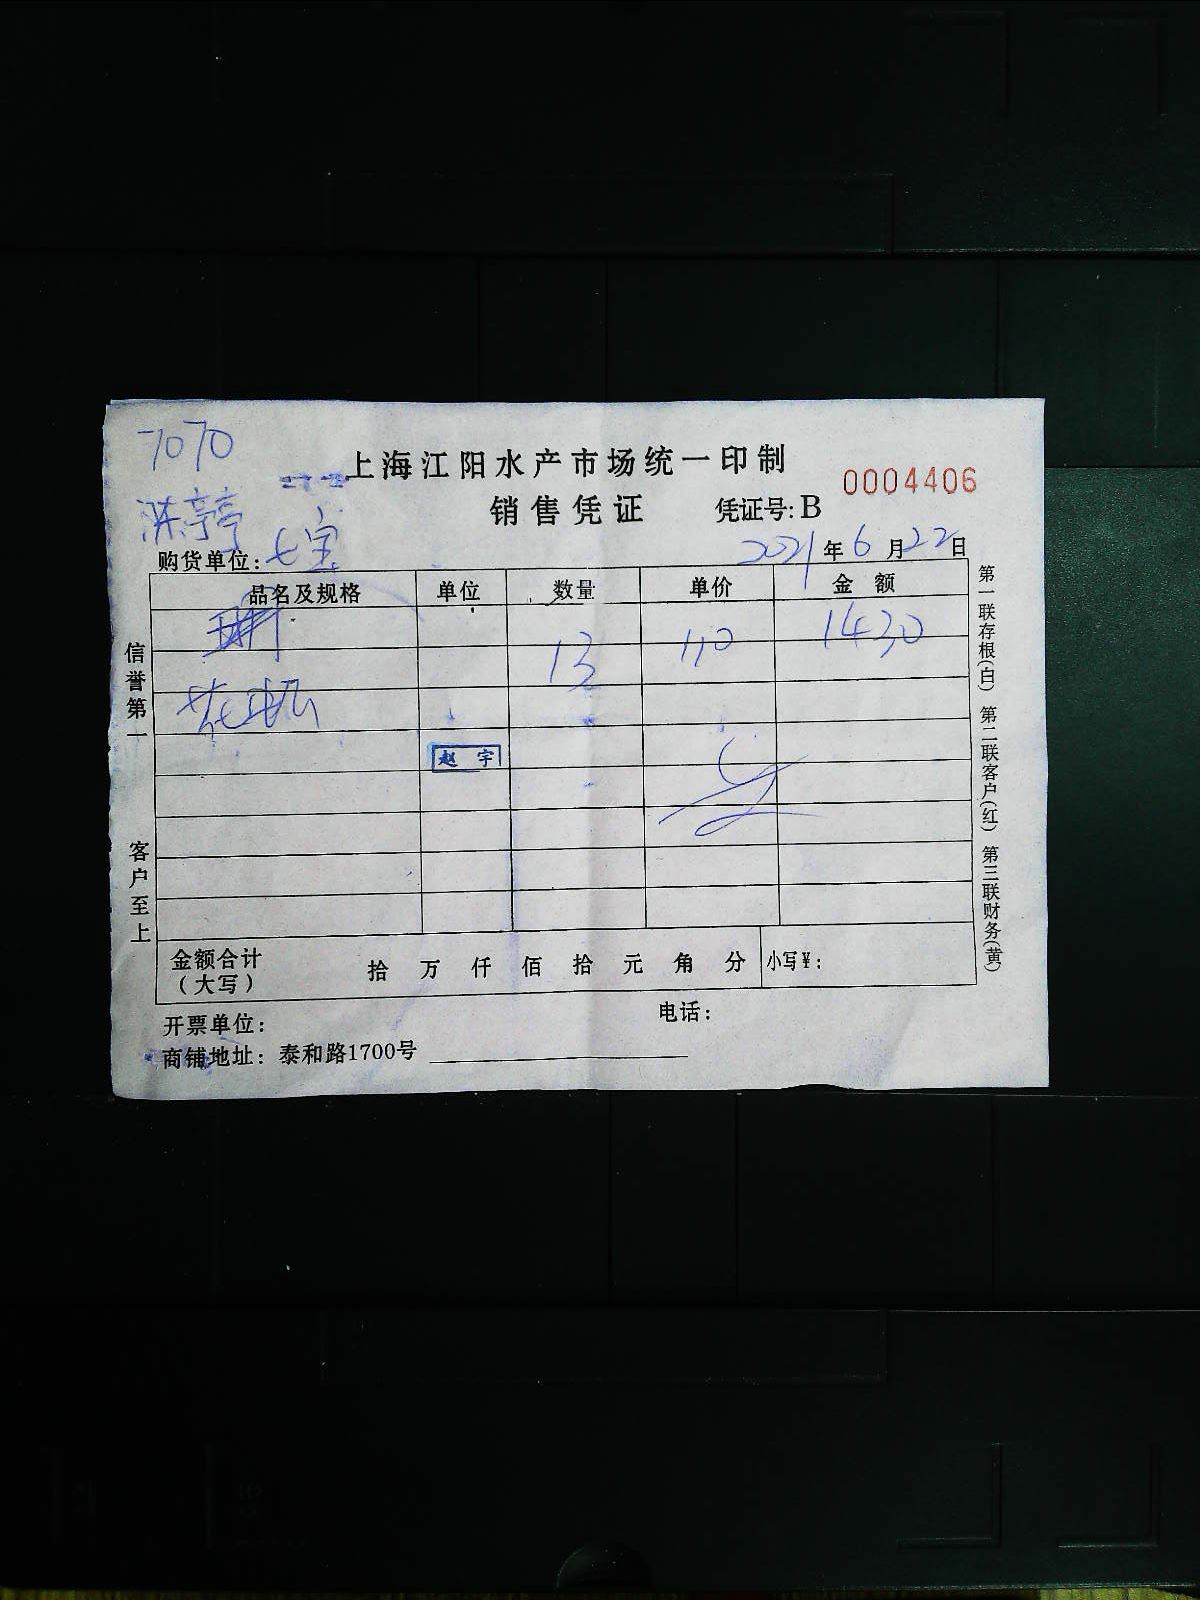 7070
陈亭亭
上海江阳水产市场统一印制
销售凭证 凭证号:B 0004406
购货单位: 七宝 2021年6月22日
品名及规格 单位 数量 单价 金额
13 110 1430
花
赵宇
金额合计(大写) 拾 万 仟 佰 拾 元 角 分 小写¥:
开票单位: 电话:
商铺地址: 泰和路1700号
信誉第一 客户至上
第一联存根(白) 第二联客户(红) 第三联财务(黄)